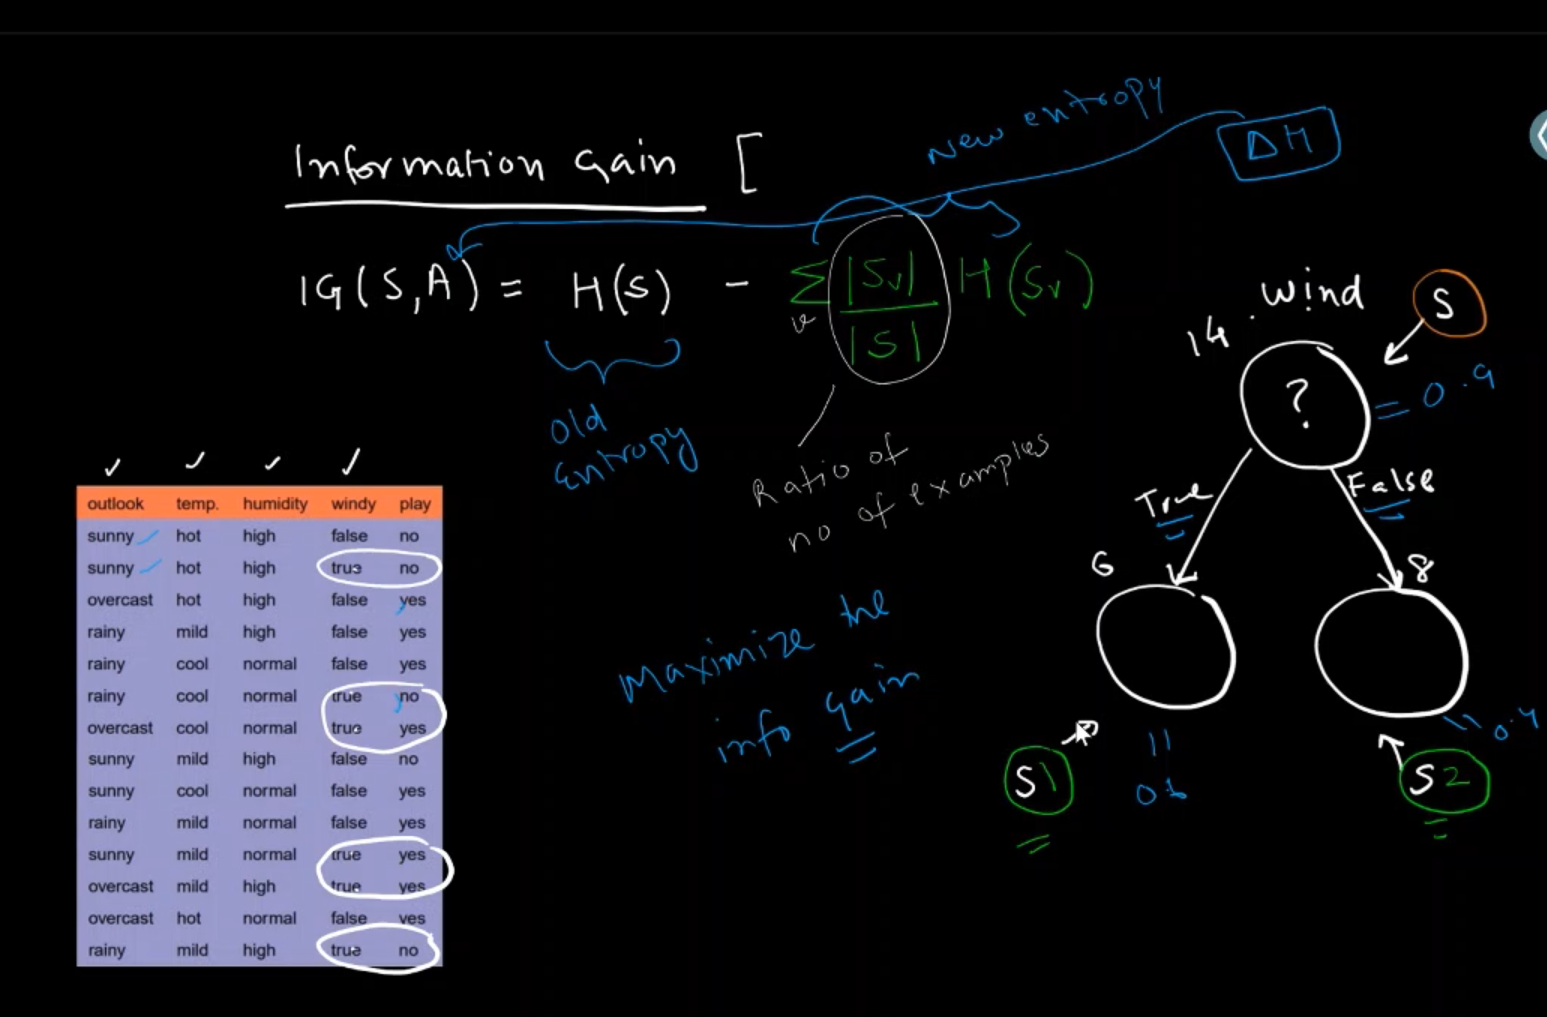 New entropy
ΔH
Information Gain [
IG(S,A) = H(S) - Σ |Sv| H(Sv)
v |S|
Wind
S
14
?
= 0.9
old
Entropy
Ratio of
no of examples
True
False
6
8
Maximize the
info gain
S1
S2
0.4
outlook temp. humidity windy play
sunny hot high false no
sunny hot high true no
overcast hot high false yes
rainy mild high false yes
rainy cool normal false yes
rainy cool normal true no
overcast cool normal true yes
sunny mild high false no
sunny cool normal false yes
rainy mild normal false yes
sunny mild normal true yes
overcast mild high true yes
overcast hot normal false yes
rainy mild high true no